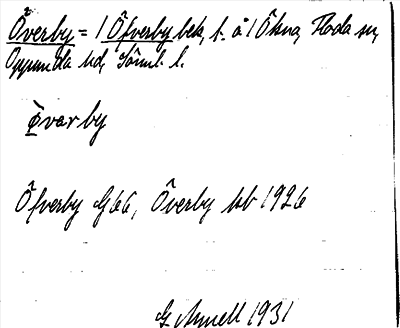 Överby = 1 Öfverby bek, f. å 1 Ökna, Floda sn,
Oppunda hd, Södml. l.
övarby
Öfverby G 66, Överby hb 1926
G. Amnell 1931